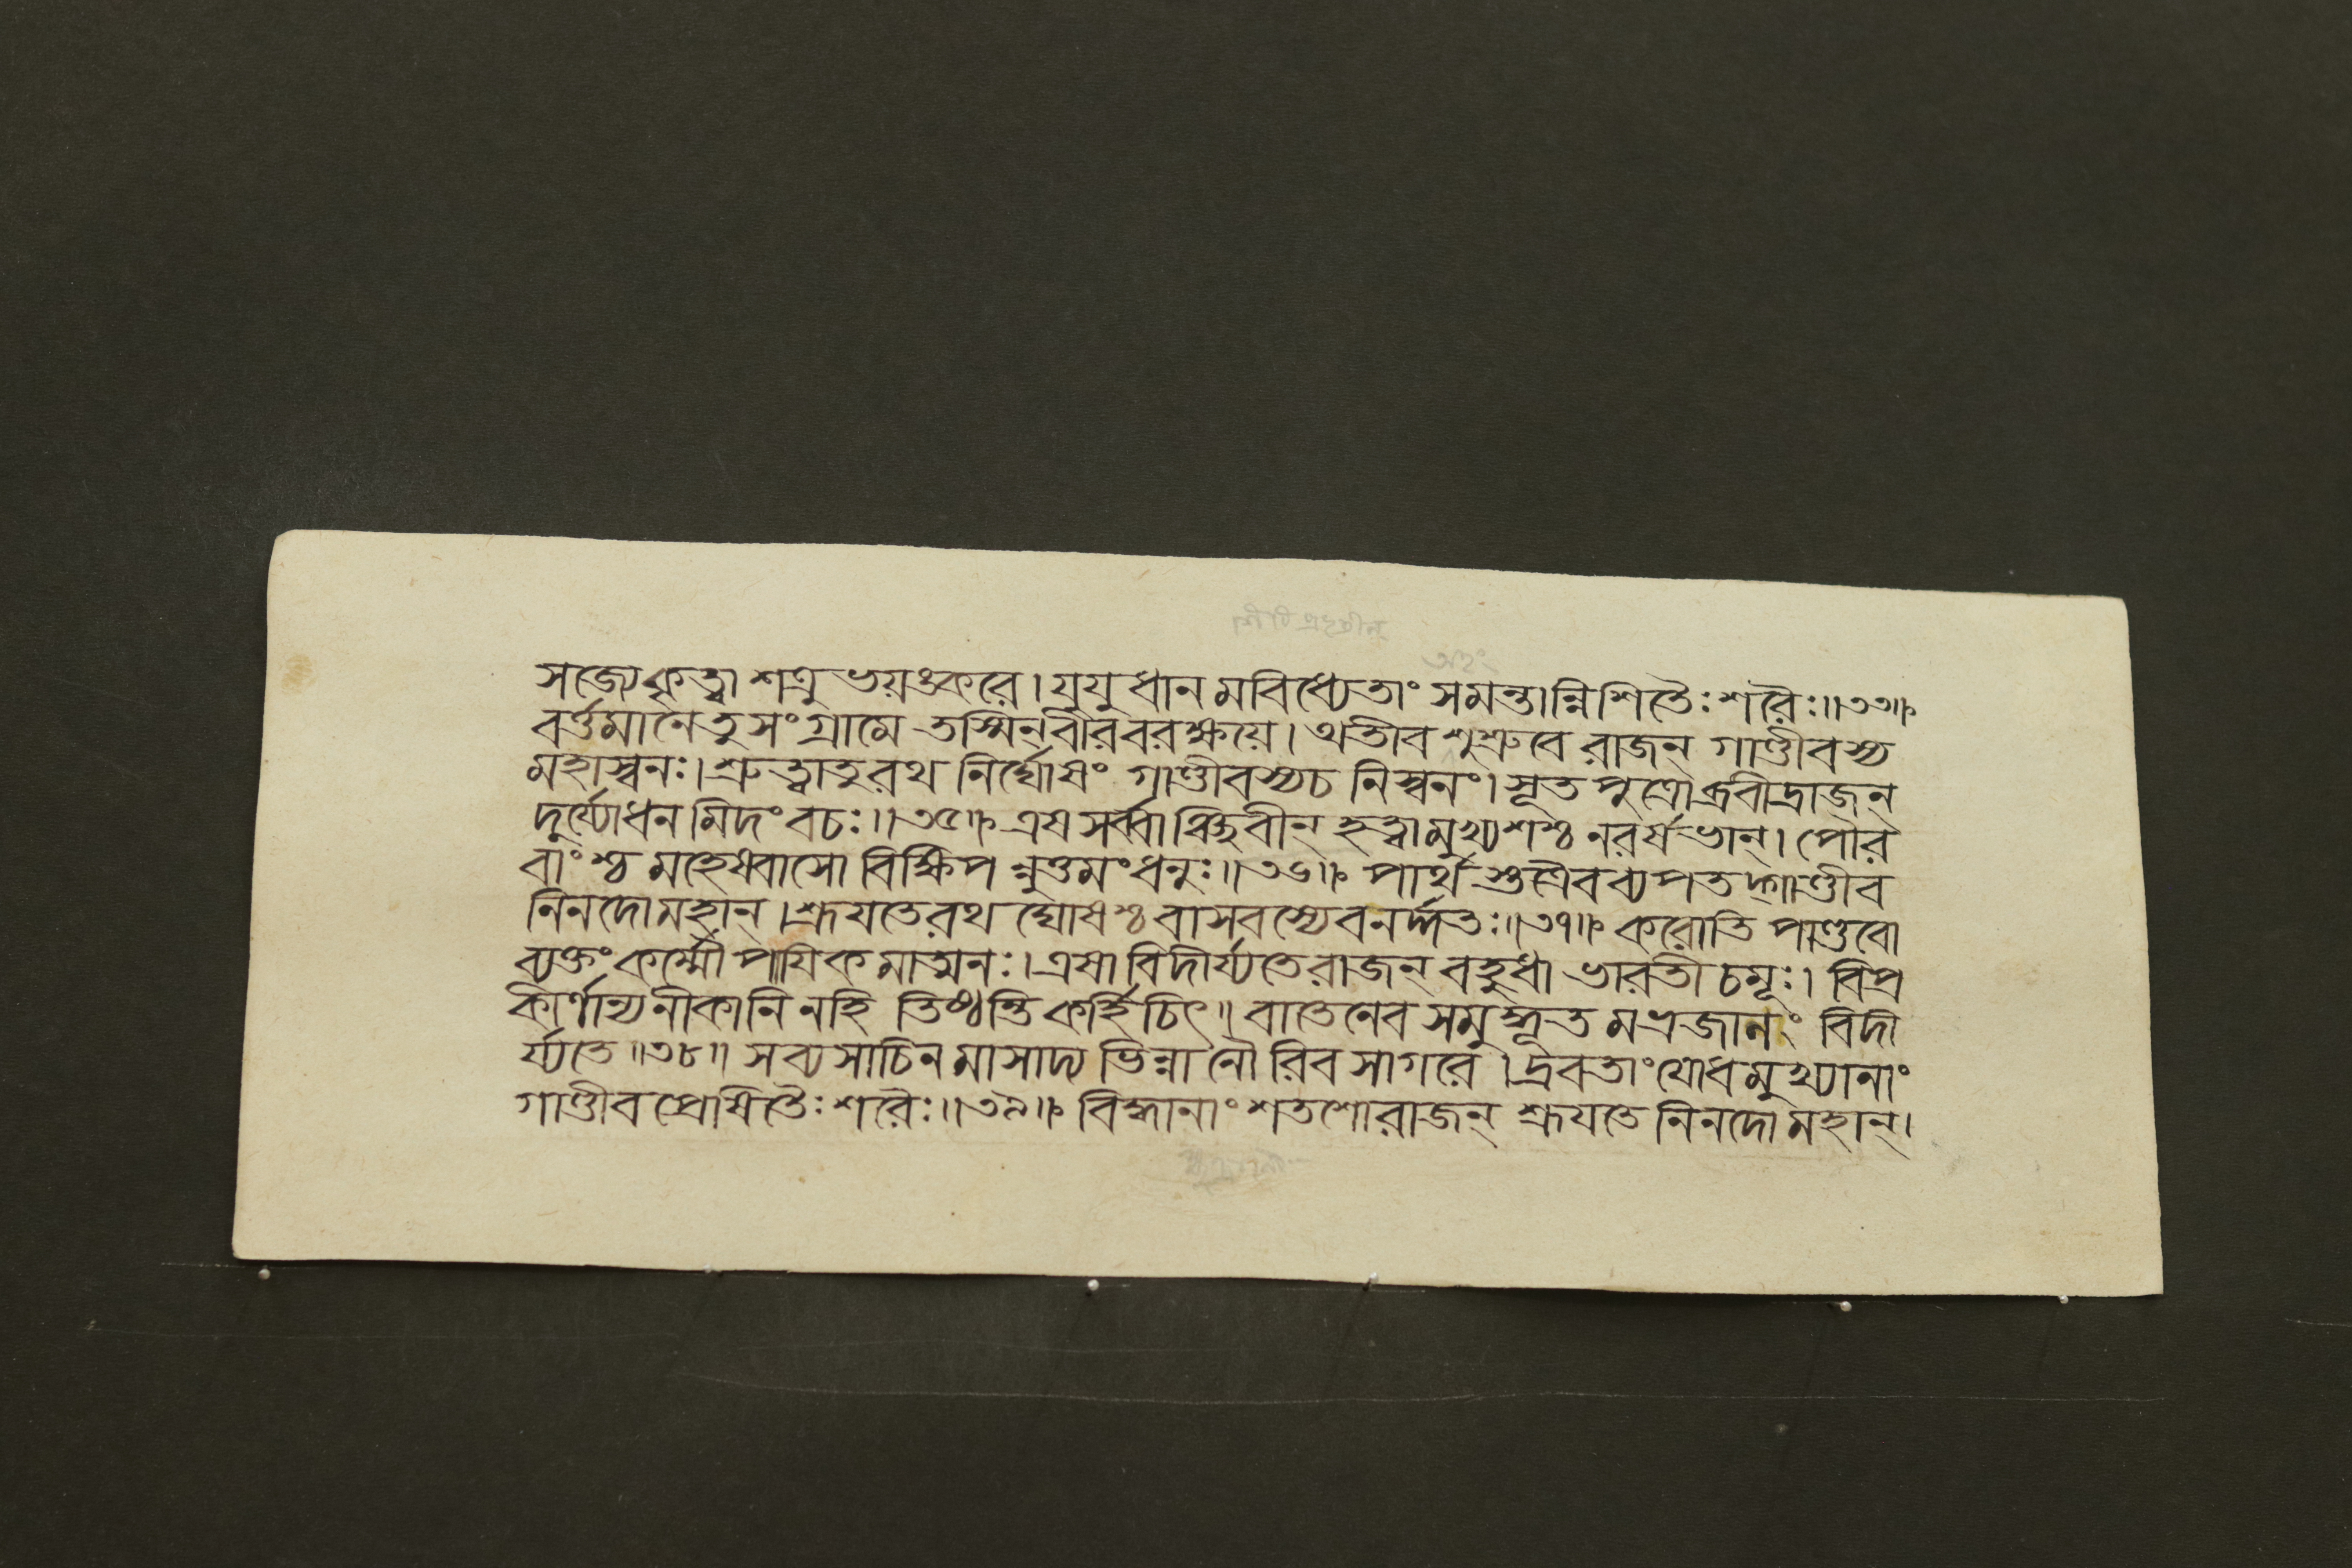 সজ্যেকৃত্বা শত্রু ভয়ঙ্করে। যুযুধান মবিধ্যেতাং সমন্তান্নিশিতৈঃ শরৈঃ॥৩৩॥
বর্ত্তমানে তু সংগ্রামে তস্মিন্ বীরবরক্ষয়ে। অতীব শুশ্রুবে রাজন্ গাণ্ডীবস্য
মহাস্বনঃ। শ্রুত্বা তু রথ নির্ঘোষং গাণ্ডীবস্য চ নিস্বনং। সূত পুত্রোব্রবীদ্রাজন্
দুর্য্যোধন মিদং বচঃ॥৩৫॥ এষ সর্ব্বাঞ্চিবীন্ হত্বা মুখ্যশশ্চ নরর্ষভান্। পৌর
বাংশ্চ মহেষ্বাসো বিক্ষিপন্নুত্তমং ধনুঃ॥৩৬॥ পার্থ শুত্রৈব ব্যপতদ্গাণ্ডীব
নিনদো মহান্। শ্রূযতে রথ ঘোষশ্চ বাসবস্যেব নর্দ্দতঃ॥৩৭॥ করোতি পাণ্ডবো
ব্যক্তং কর্ম্মৌপায়িক মাত্মনঃ। এষা বিদীর্য্যতে রাজন্ বহুধা ভারতী চমূঃ। বিপ্র
কীর্ণান্যনীকানি নহি তিষ্ঠন্তি কর্হিচিৎ॥ বাতেনেব সমুদ্ভূত মভ্রজানাং বিদী
র্য্যতে॥৩৮॥ সব্যসাচিন মাসাদ্য ভিন্না নৌ রিব সাগরে। দ্রবতাং যোধমুখ্যানাং
গাণ্ডীব প্রেষিতৈঃ শরৈঃ॥৩৯॥ বিদ্ধানাং শতশো রাজন্ শ্রূযতে নিনদো মহান্।